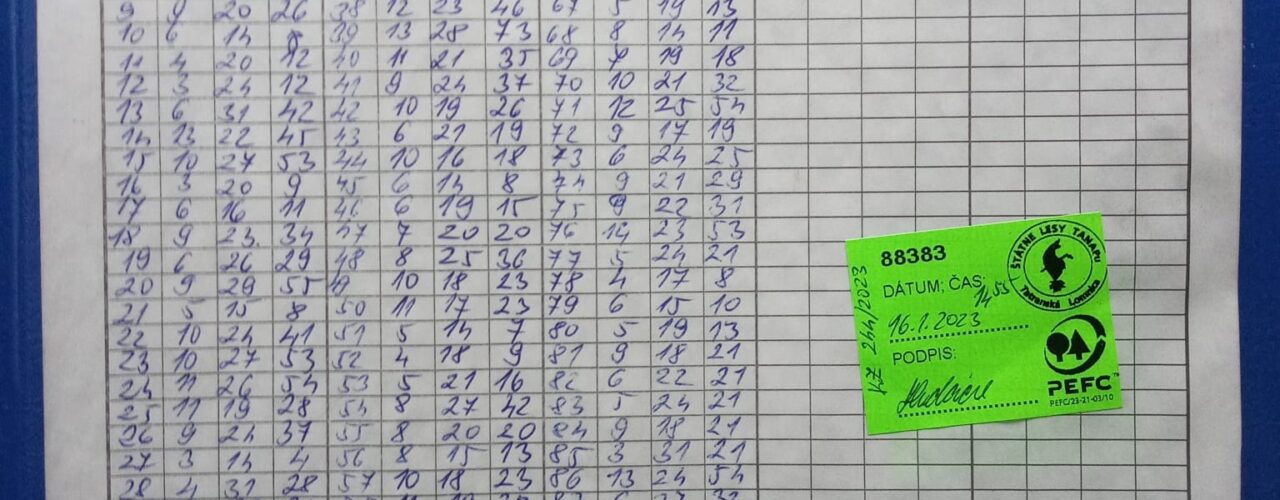 9 9 20 26 38 12 23 46 67 5 19 13
10 6 14 39 13 28 73 68 8 14 11
11 4 20 12 40 11 21 35 69 7 19 18
12 3 24 12 41 9 24 37 70 10 21 32
13 6 31 42 42 10 19 26 71 12 25 54
14 13 22 45 43 6 21 19 72 9 17 19
15 10 27 53 44 10 16 18 73 6 24 25
16 3 20 9 45 6 14 8 74 9 21 29
17 6 16 11 46 6 19 15 75 9 22 31
18 9 23. 34 47 7 20 20 76 14 23 53
19 6 26 29 48 8 25 36 77 5 24 21
20 9 29 55 10 18 23 78 4 17 8
21 5 15 8 50 11 17 23 79 6 15 10
22 10 24 41 51 5 14 7 80 5 19 13
23 10 27 53 52 4 18 9 81 9 18 21
24 11 26 54 53 5 21 16 82 6 22 21
25 11 19 28 54 8 27 42 83 5 24 21
26 9 24 37 55 8 20 20 84 9 18 21
27 3 14 4 56 8 15 13 85 3 31 21
28 4 31 28 57 10 18 23 86 13 24 54
88383
ŠTÁTNE LESY TANAPu
Tatranská Lomnica
DÁTUM; ČAS:
14 53
16.1.2023
PODPIS:
244/2023
PEFC™
PEFC/23-21-03/10